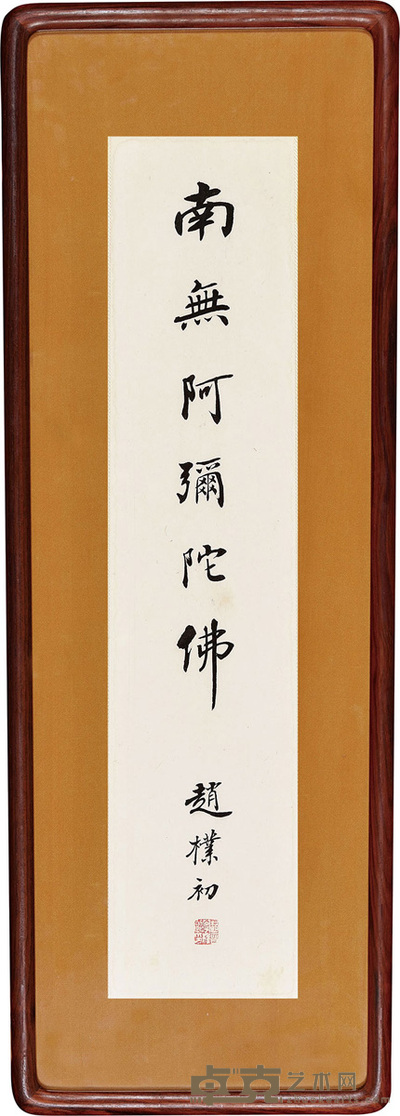 南無阿彌陀佛
趙樸初
卓克艺术网